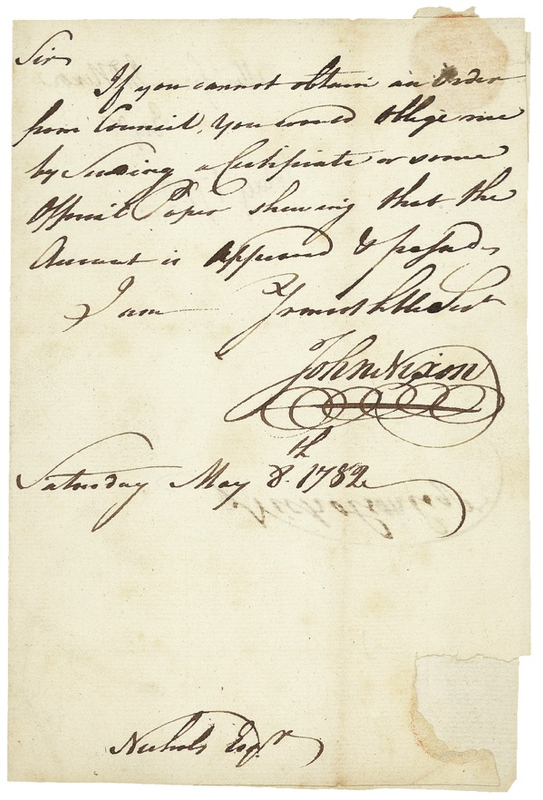 Sir
If you cannot obtain an Order
from Council, you would Oblige me
by Sending a Certificate or some
Official Paper shewing that the
Account is Approved & passed
I am Yr most hble Servt
John Nixon
Saturday May 8th. 1782
Nichols Esqr